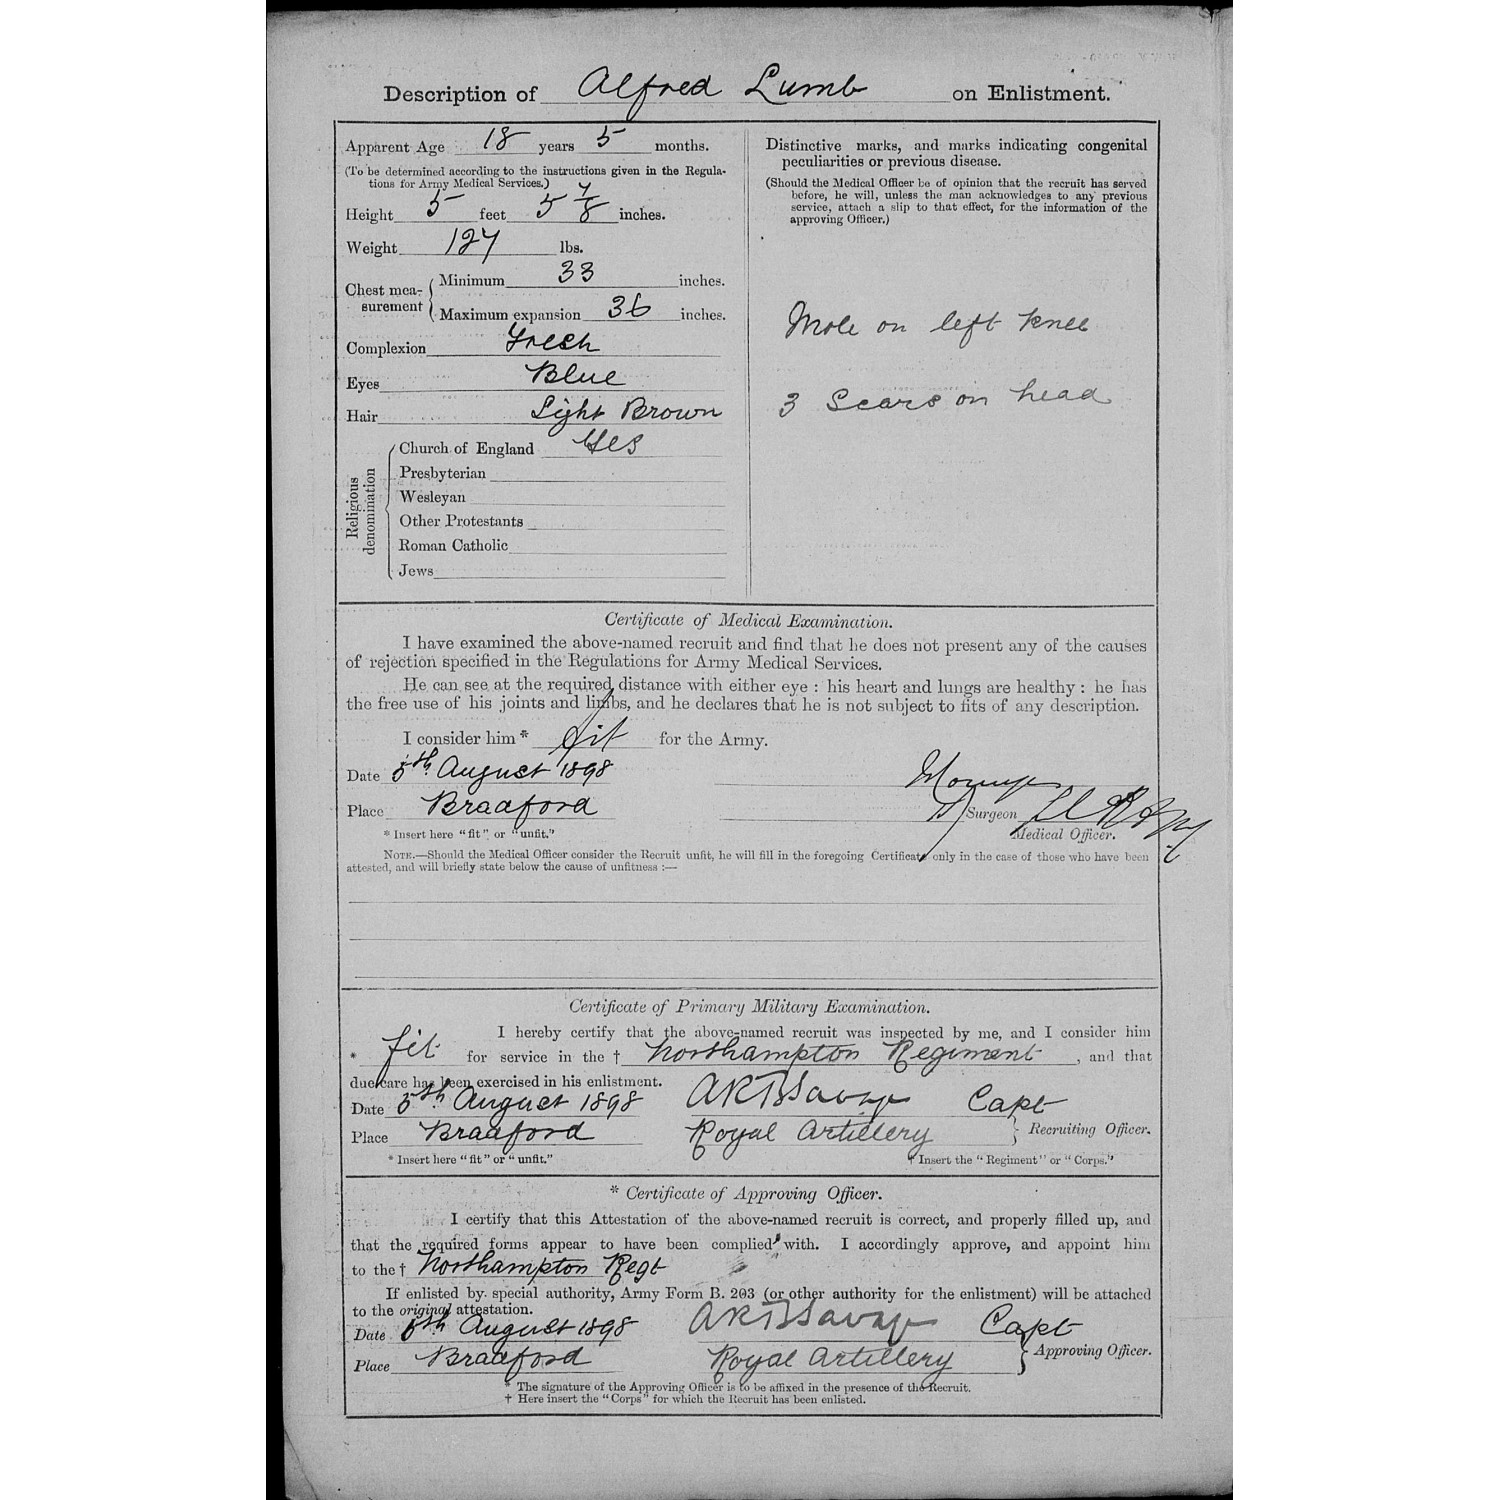 Description of Alfred Lumb on Enlistment.
Apparent Age 18 years 5 months.
(To be determined according to the instructions given in the Regula-
tions for Army Medical Services.)
Height 5 feet 5 7/8 inches.
Weight 127 lbs.
Chest mea-
surement
Minimum 33 inches.
Maximum expansion 36 inches.
Complexion Fresh
Eyes Blue
Hair Light Brown
Religious
denomination
Church of England Yes
Presbyterian
Wesleyan
Other Protestants
Roman Catholic
Jews
Distinctive marks, and marks indicating congenital
peculiarities or previous disease.
(Should the Medical Officer be of opinion that the recruit has served
before, he will, unless the man acknowledges to any previous
service, attach a slip to that effect, for the information of the
approving Officer.)
Mole on left knee
3 Scars on head
Certificate of Medical Examination.
I have examined the above-named recruit and find that he does not present any of the causes
of rejection specified in the Regulations for Army Medical Services.
He can see at the required distance with either eye : his heart and lungs are healthy : he has
the free use of his joints and limbs, and he declares that he is not subject to fits of any description.
I consider him * fit for the Army.
Date 5th August 1898
Place Bradford
Surgeon
Medical Officer.
* Insert here "fit" or "unfit."
NOTE.—Should the Medical Officer consider the Recruit unfit, he will fill in the foregoing Certificate only in the case of those who have been
attested, and will briefly state below the cause of unfitness :—
Certificate of Primary Military Examination.
I hereby certify that the above-named recruit was inspected by me, and I consider him
* fit for service in the † Northampton Regiment, and that
due care has been exercised in his enlistment.
Date 5th August 1898 Capt
Place Bradford Royal Artillery } Recruiting Officer.
* Insert here "fit" or "unfit." † Insert the "Regiment" or "Corps."
* Certificate of Approving Officer.
I certify that this Attestation of the above-named recruit is correct, and properly filled up, and
that the required forms appear to have been complied with. I accordingly approve, and appoint him
to the † Northampton Regt
If enlisted by special authority, Army Form B. 203 (or other authority for the enlistment) will be attached
to the original attestation.
Date 5th August 1898 Capt
Place Bradford Royal Artillery } Approving Officer.
* The signature of the Approving Officer is to be affixed in the presence of the Recruit.
† Here insert the "Corps" for which the Recruit has been enlisted.